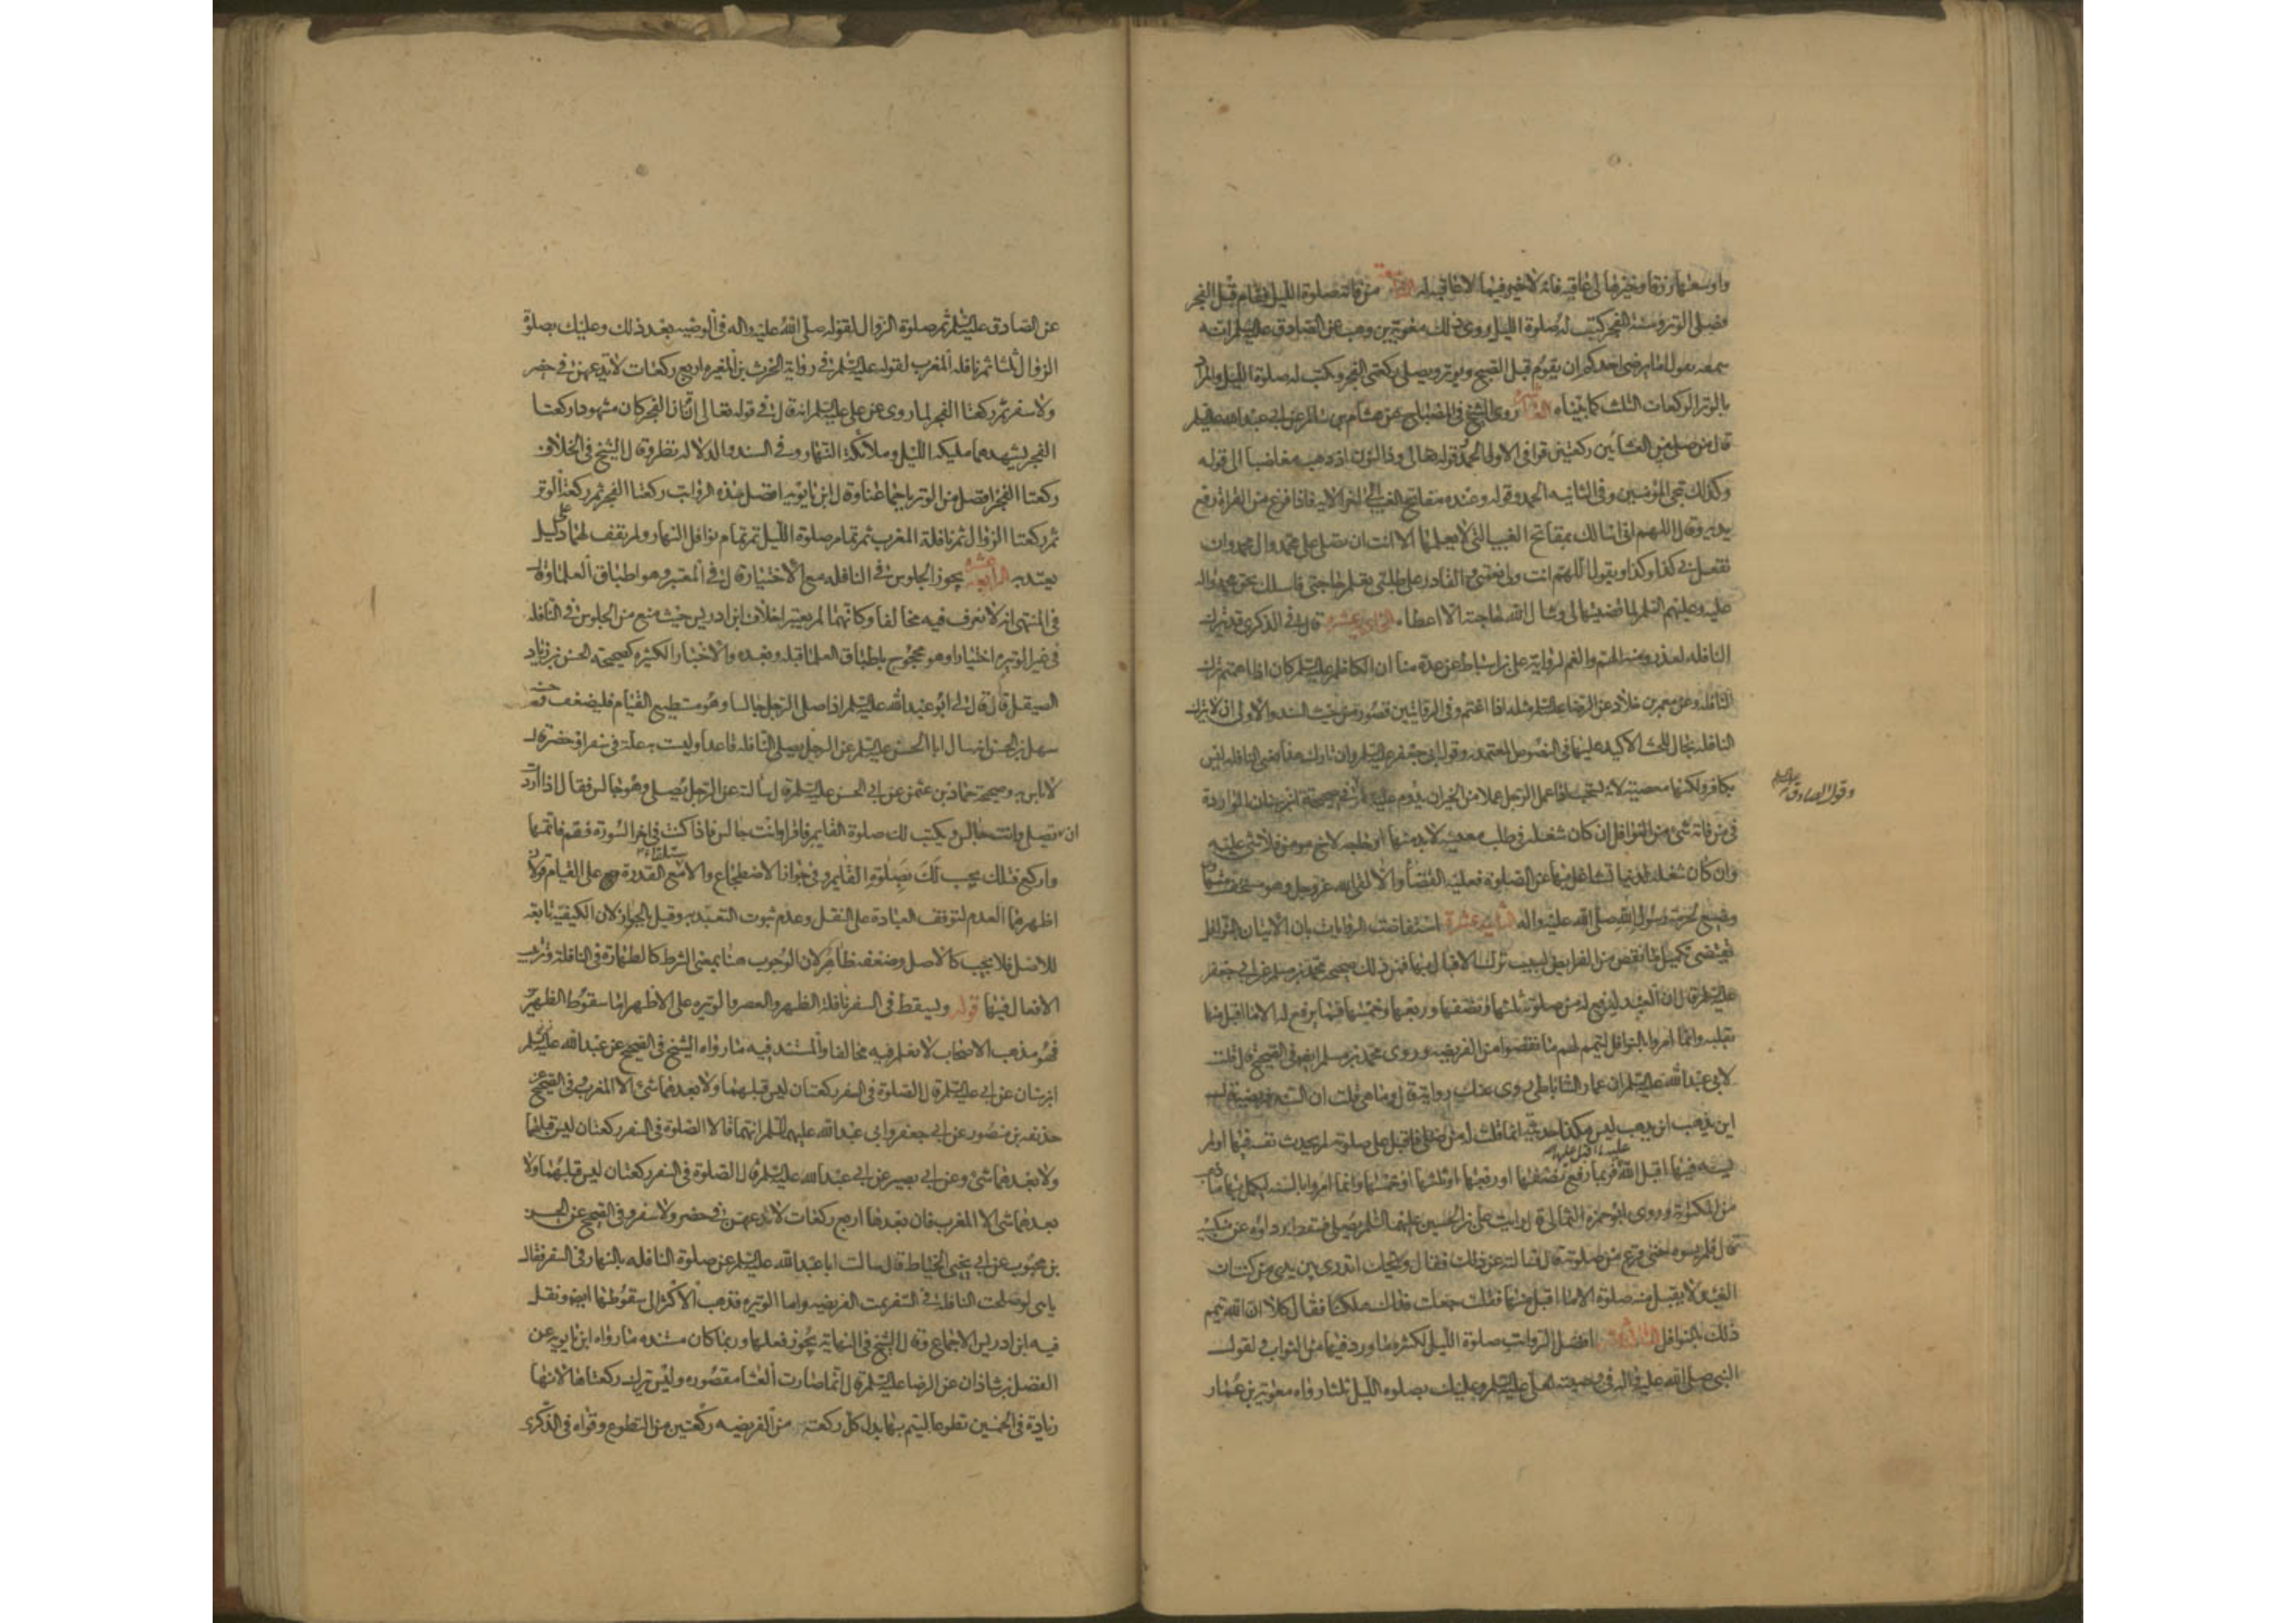 واوسعها رزقا وخيرها لي عاقبه فانه لا خير فيما لا عاقبة له التاسعة من فاتته صلوة الليل فقام قبل الفجر
فصلى الوتر وسنة الفجر كتب له صلوة الليل روى ذلك معوية بن وهب عن الصادق عليه السلم انه
سمعه يقول اما يرضى احدكم ان يقوم قبل الصبح ويوتر ويصلي ركعتي الفجر ويكتب له صلوة الليل والمراد
بالوتر الركعات الثلث كما بيناه العاشرة روى الشيخ في المصباح عن هشام بن سالم عن ابي عبد الله عليه السلم
قال من صلى بين العشائين ركعتين قرا في الاولى الحمد وقوله تعالى وذا النون اذ ذهب مغاضبا الى قوله
وكذلك ننجي المؤمنين وفي الثانيه الحمد وقوله وعنده مفاتح الغيب الى اخر الايه فاذا فرغ من القراءة رفع
يديه وقال اللهم اني اسالك بمفاتح الغيب التي لا يعلمها الا انت ان تصلي على محمد وال محمد وان
تفعل بي كذا وكذا ويقول اللهم انت ولي نعمتي والقادر على طلبتي تعلم حاجتي فاسلك بحق محمد واله
عليه وعليهم السلم لما قضيتها لي وسال الله حاجته الا اعطاه الحادية عشرة قال في الذكرى قد تترك
النافله لعذر ومنه الهم والغم لرواية علي بن اسباط عن عدة منا ان الكاظم عليه السلم كان اذا اهتم ترك
النافله وعن معمر بن خلاد عن الرضا عليه السلم مثله اذا اغتم وفي الروايتين قصور من حيث السند والاولى ان لا يترك
النافله بحال للحث الاكيد عليها في النصوص المعتمده وقول ابي جعفر عليه السلم وان تارك هذا يعني النافله ليس
بكافر ولكنها معصية لانه يستحب اذا عمل الرجل عملا من الخير ان يدوم عليه في صحيحة ابن سنان الواردة
وقول الصادق عليه السلم
في من فاته شئ من النوافل ان كان شغله في طلب معيشة لا بد منها او حاجه لاخ مومن فلا شئ عليه
وان كان شغله لدنيا تشاغل بها عن الصلوة فعليه القضا والا لقى الله عز وجل وهو مستخف متهاون
مضيع لحرمة رسول الله صلى الله عليه واله الثانية عشرة استفاضت الروايات بان الاتيان بالنوافل
يقتضي تكميل ما نقص من الفرايض بسبب ترك الاقبال بها فمن ذلك صحيحه محمد بن مسلم عن ابي جعفر
عليه السلم قال ان العبد ليرفع له من صلوته ثلثها ونصفها وربعها وخمسها فما يرفع له الا ما اقبل منها
بقلبه وانما امروا بالنوافل ليتم لهم ما نقصوا من الفريضه وروى محمد بن مسلم ايضا في الصحيح قال قلت
لابي عبد الله عليه السلم ان عمار الساباطي روى عنك رواية قال وما هي قلت ان السنه فريضة قال
اين يذهب اين يذهب ليس هكذا حدثته انما قلت له من صلى فاقبل على صلوته لم يحدث نفسه فيها او لم
يسه فيها اقبل الله عليه ما اقبل عليها فربما رفع نصفها او ربعها او ثلثها او خمسها وانما امروا بالسنه ليكمل بها ما ذهب
من المكتوبة وروى ابو حمزة الثمالي قال رايت علي بن الحسين عليهما السلم يصلي فسقط رداؤه عن منكبيه
قال فلم يسوه حتى فرغ من صلوته قال فسالته عن ذلك فقال ويحك اتدري بين يدي من كنت ان
العبد لا يقبل منه صلوة الا ما اقبل منها فقلت جعلت فداك هلكنا فقال كلا ان الله يتمم
ذلك بالنوافل الثالثة عشر افضل الرواتب صلوة الليل لكثرة ما ورد فيها من الثواب ولقول
النبي صلى الله عليه واله في وصيته لعلي عليه السلم وعليك بصلوه الليل ثلثا رواه معوية بن عمار
عن الصادق عليه السلم ثم صلوة الزوال لقوله صلى الله عليه واله في الوصيه بعد ذلك وعليك بصلوة
الزوال ثلثا ثم نافلة المغرب لقوله عليه السلم في رواية الحرث بن المغيره اربع ركعات لا تدعهن في حضر
ولا سفر ثم ركعتا الفجر لما روى عن علي عليه السلم انه قال في قوله تعالى ان قران الفجر كان مشهودا ركعتا
الفجر يشهدهما مليكه الليل وملائكة النهار وفي السند والدلاله نظر وقال الشيخ في الخلاف
ركعتا الفجر افضل من الوتر باجماعنا وقال ابن بابويه افضل هذه الرواتب ركعتا الفجر ثم ركعة الوتر
ثم ركعتا الزوال ثم نافلة المغرب ثم تمام صلوة الليل ثم تمام نوافل النهار ولم نقف لهما على دليل
يعتد به الرابعة عشره يجوز الجلوس في النافله مع الاختيار قال في المعتبر وهو اطباق العلما وقال
في المنتهى انه لا نعرف فيه مخالفا وكانهما لم يعتبرا خلاف ابن ادريس حيث منع من الجلوس في النافله
في غير الوتيره اختيارا وهو محجوج باطباق العلما قبله وبعده والاخبار الكثيره كصحيحة الحسن بن زياد
الصيقل قال قال لي ابو عبد الله عليه السلم اذا صلى الرجل جالسا وهو مستطيع القيام فليضعف وحسنة
سهل بن اليسع انه سال ابا الحسن عليه السلم عن الرجل يصلي النافله قاعدا وليست به علة في سفر او حضر قال
لا باس به وصحيحة حماد بن عثمن عن ابي الحسن عليه السلم قال سالته عن الرجل يصلي وهو جالس فقال اذا اردت
ان تصلي وانت جالس ويكتب لك صلوة القايم فاقرا وانت جالس فاذا كنت في اخر السورة فقم فاتمها
واركع فتلك يحسب لك بصلوة القايم وفي جواز الاضطجاع والاستلقاء مع القدرة على القيام قولان
اظهرهما العدم لتوقف العبادة على النقل وعدم ثبوت التعبد به وقيل بالجواز لان الكيفية تابعة
للاصل فلا يجب كالاصل وضعفه ظاهر لان الوجوب هنا بمعنى الشرط كالطهارة في النافلة وترتيب
الافعال فيها قوله ويسقط في السفر نافلة الظهر والعصر والوتيره على الاظهر اما سقوط الظهرين
فهو مذهب الاصحاب لا نعلم فيه مخالفا والمستند فيه ما رواه الشيخ في الصحيح عن عبد الله
ابن سنان عن ابي عليه السلم قال الصلوة في السفر ركعتان ليس قبلهما ولا بعدهما شئ الا المغرب وفي الصحيح عن
حذيفه بن منصور عن ابي جعفر وابي عبد الله عليهما السلم انهما قالا الصلوة في السفر ركعتان ليس قبلهما
ولا بعدهما شئ وعن ابي بصير عن ابي عبد الله عليه السلم قال الصلوة في السفر ركعتان ليس قبلهما ولا
بعدهما شئ الا المغرب فان بعدها اربع ركعات لا تدعهن في حضر ولا سفر وفي الصحيح عن الحسن
بن محبوب عن ابي يحيى الخياط قال سالت ابا عبد الله عليه السلم عن صلوة النافله بالنهار في السفر فقال
يا بني لو صلحت النافلة في السفر تمت الفريضه واما الوتيره فذهب الاكثر الى سقوطها ايضا ونقل
فيه ابن ادريس الاجماع وقال الشيخ في النهاية يجوز فعلها وربما كان مستنده ما رواه ابن بابويه عن
الفضل بن شاذان عن الرضا عليه السلم قال انما صارت العشا مقصوره وليس تترك ركعتاها لانها
زيادة في الخمسين تطوعا ليتم بها بدل كل ركعة من الفريضه ركعتين من التطوع وقواه في الذكرى